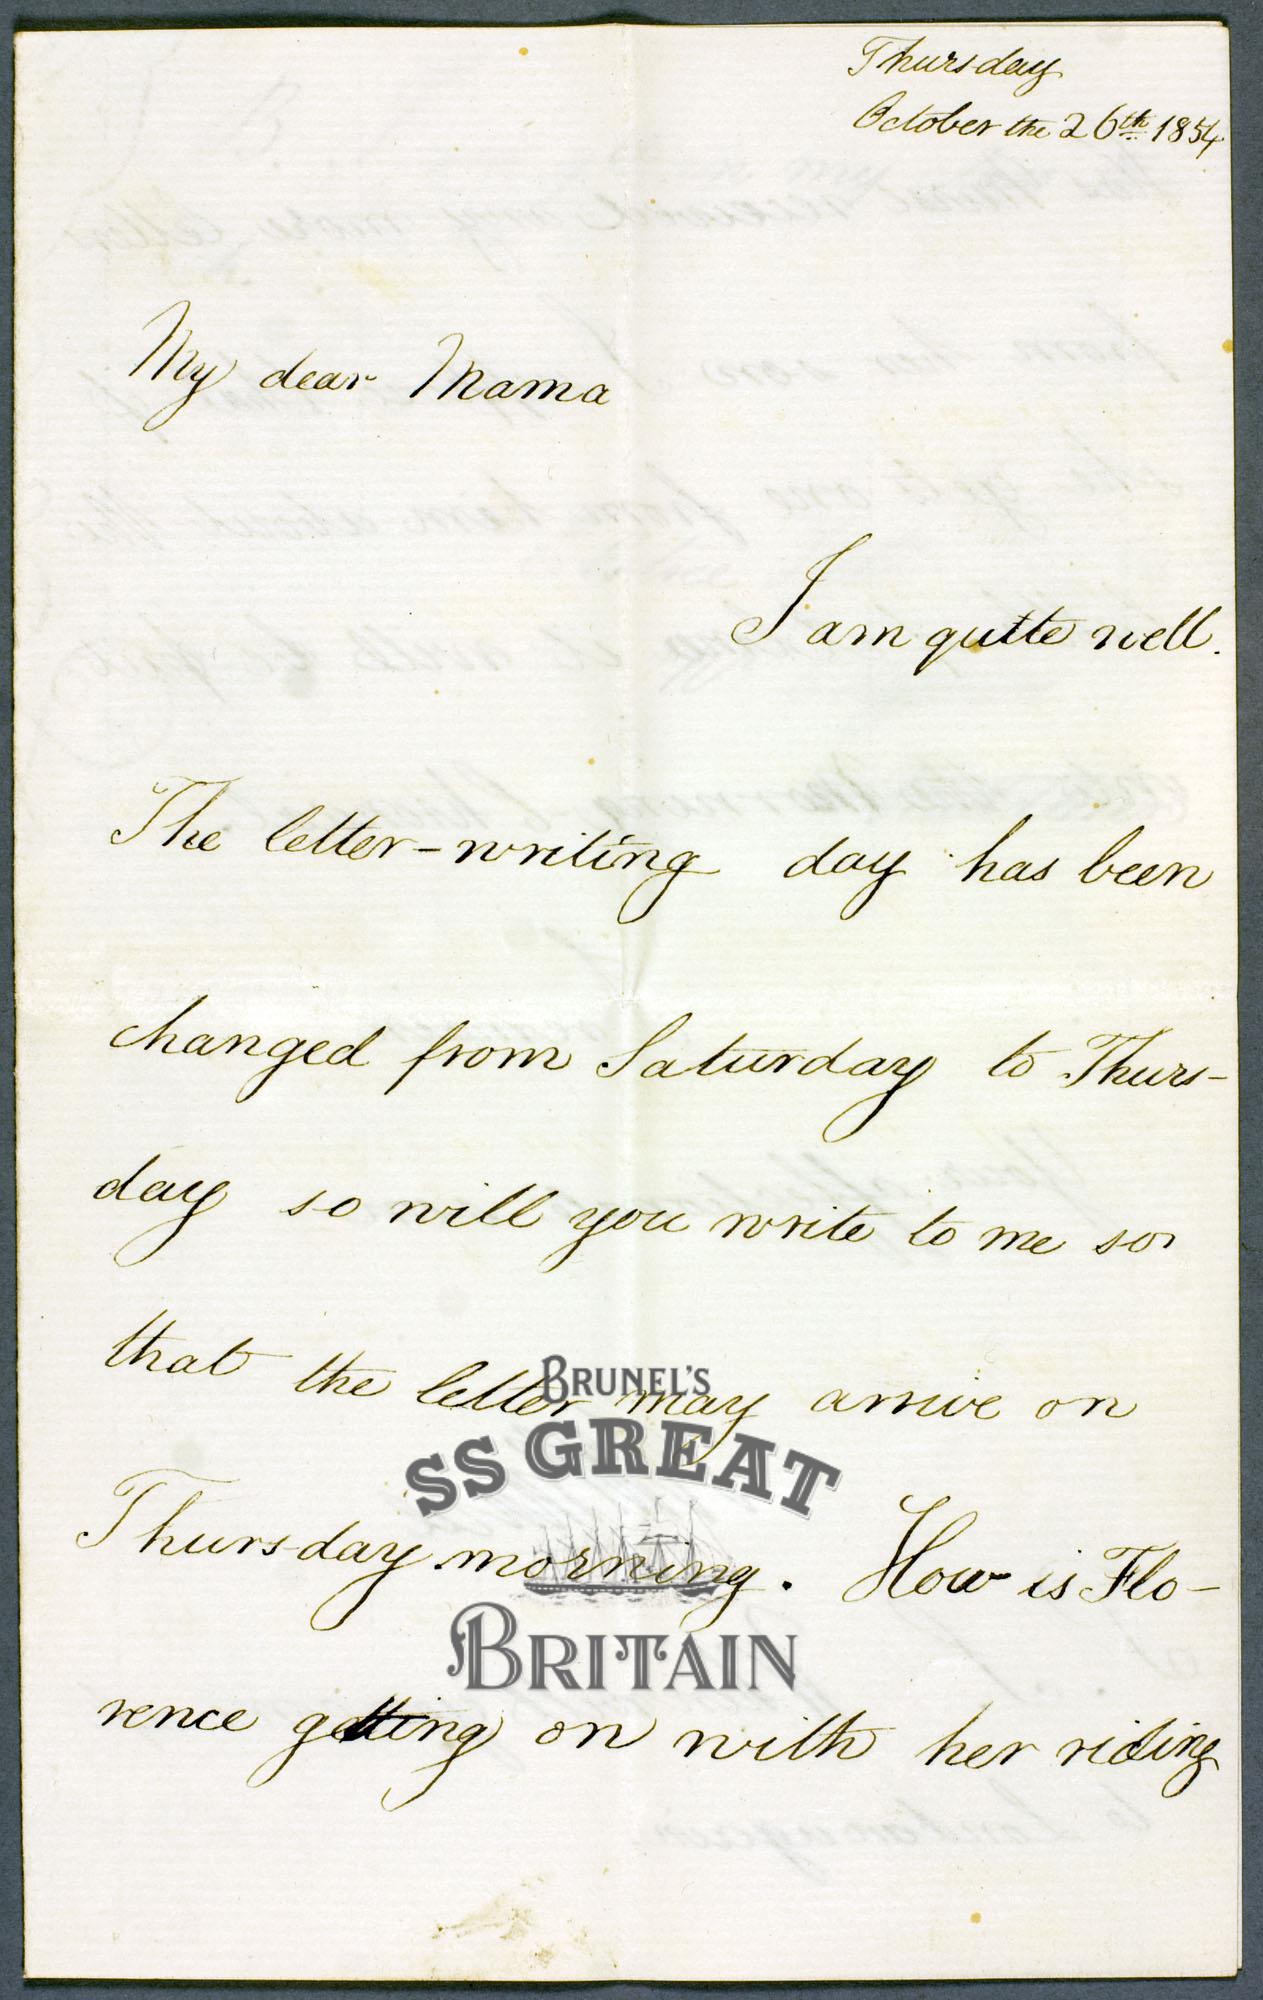 Thursday
October the 26th 1854
My dear Mama
I am quite well.
The letter-writing day has been
changed from Saturday to Thurs-
day so will you write to me so
that the letter may arrive on
Thursday morning. How is Flo-
rence getting on with her riding
BRUNEL'S
SS GREAT
BRITAIN